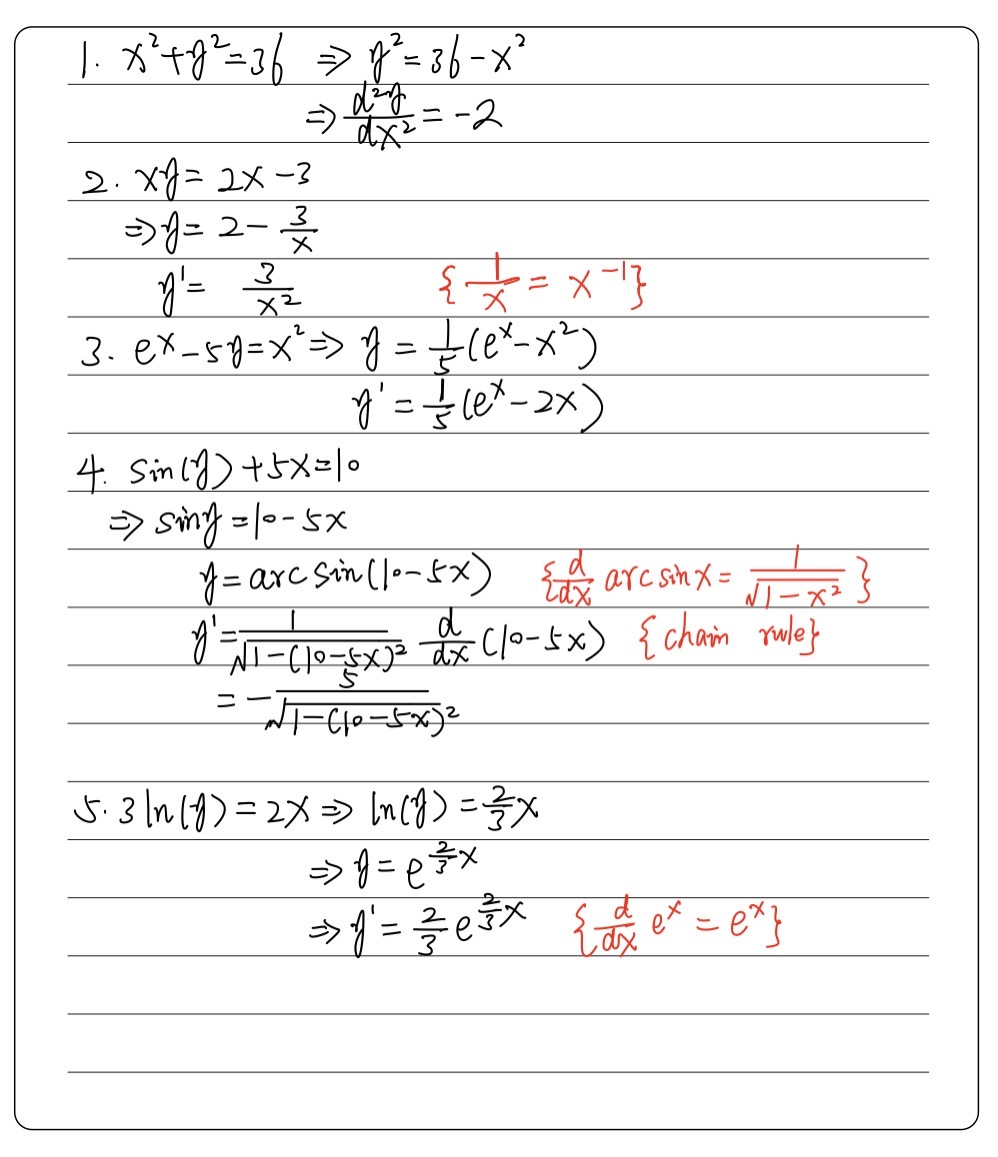 1. x²+y²=36 ⇒ y²=36-x²
⇒ d²y/dx² = -2
2. xy= 2x-3
⇒ y= 2 - 3/x
y'= 3/x² {1/x = x⁻¹}
3. eˣ-5y=x² ⇒ y = 1/5(eˣ-x²)
y' = 1/5(eˣ-2x)
4. sin(y)+5x=10
⇒ siny=10-5x
y=arcsin(10-5x) {d/dx arcsinx = 1/√(1-x²)}
y'= 1/√(1-(10-5x)²) d/dx (10-5x) {chain rule}
= - 5/√(1-(10-5x)²)
5. 3ln(y)=2x ⇒ ln(y) = 2/3 x
⇒ y= e^(2/3 x)
⇒ y' = 2/3 e^(2/3 x) {d/dx eˣ = eˣ}